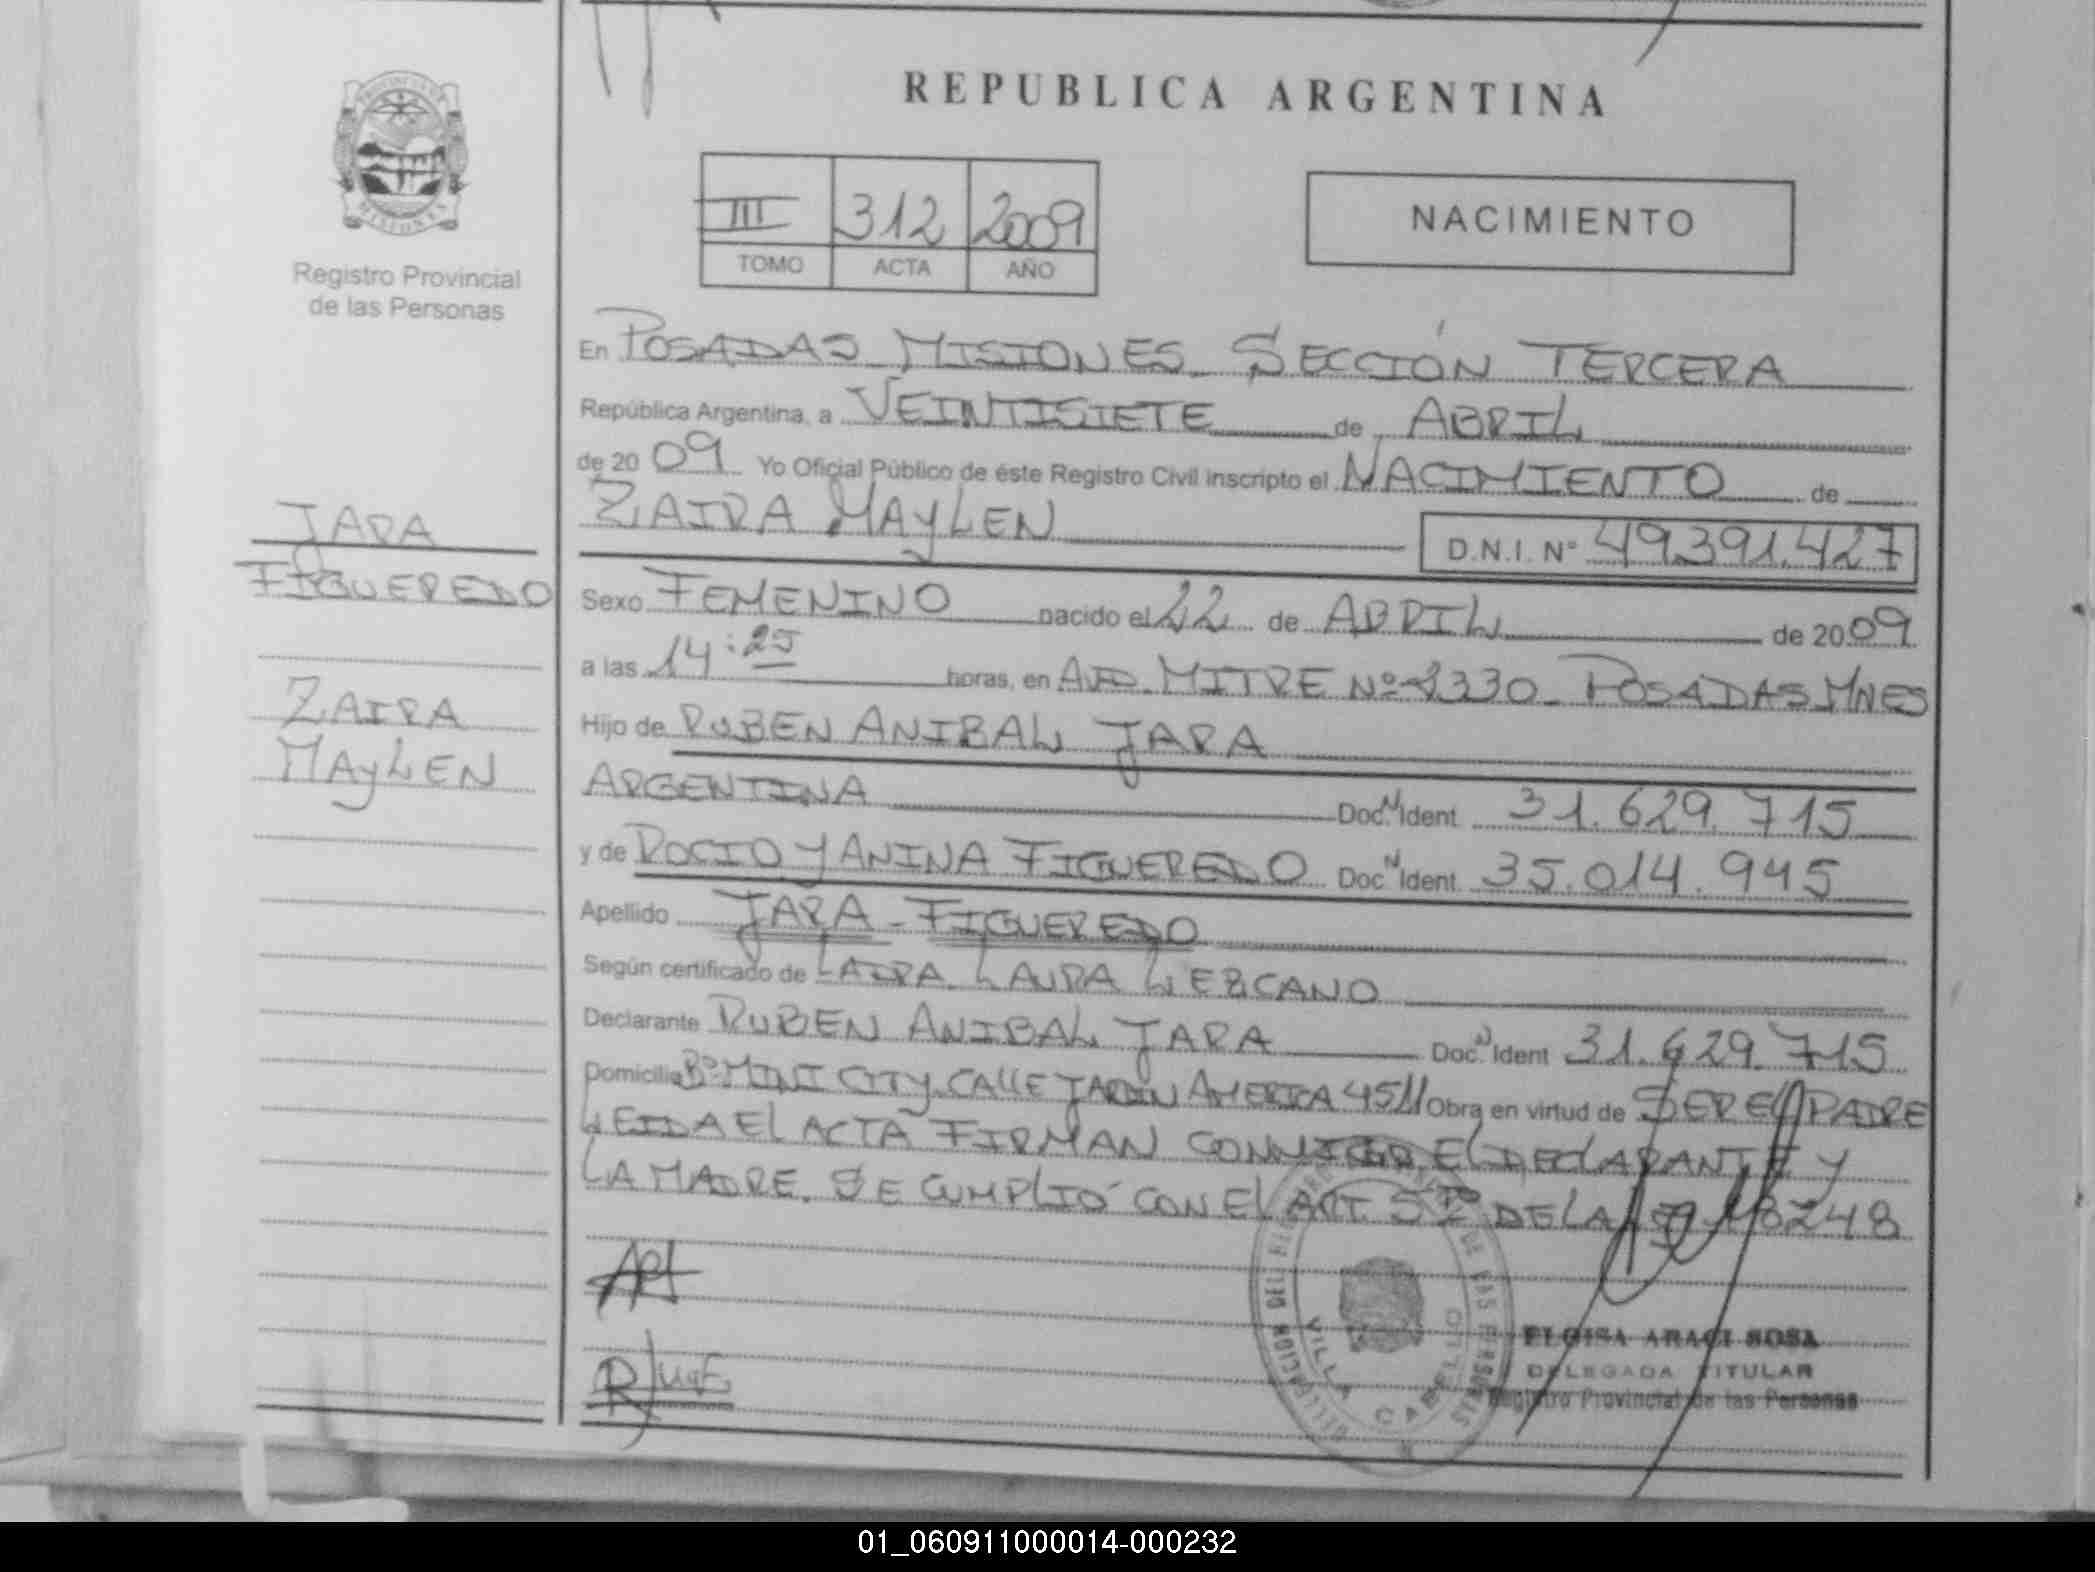 REPUBLICA ARGENTINA
PROVINCIA DE
MISIONES
Registro Provincial
de las Personas
III 312 2009
TOMO ACTA AÑO
NACIMIENTO
En POSADAS MISIONES SECCIÓN TERCERA
República Argentina, a VEINTISIETE de ABRIL
de 20 09 Yo Oficial Público de éste Registro Civil inscripto el NACIMIENTO de
ZAIRA MAYLEN D.N.I. Nº 49.391.427
JARA
FIGUEREDO
ZAIRA
MAYLEN
Sexo FEMENINO nacido el 22 de ABRIL de 20 09
a las 14:25 horas, en AVD. MITRE Nº 2330 - POSADAS MNES
Hijo de RUBEN ANIBAL JARA
ARGENTINA Doc. N Ident 31.629.715
y de ROCIO YANINA FIGUEREDO Doc N Ident. 35.014.945
Apellido JARA - FIGUEREDO
Según certificado de LAURA LEZCANO
Declarante RUBEN ANIBAL JARA Doc. N Ident 31.629.715
Domicilio Bº MINI CITY CALLE JARDIN AMERICA 4511 Obra en virtud de SER EL PADRE
LEIDA EL ACTA FIRMAN CONMIGO EL DECLARANTE Y
LA MADRE. SE CUMPLIÓ CON EL ART. 5º DE LA LEY 18248
DELEGACION DEL REGISTRO DE LAS PERSONAS
VILLA CABELLO
ELOISA ARACI SOSA
DELEGADA TITULAR
Registro Provincial de las Personas
01_060911000014-000232